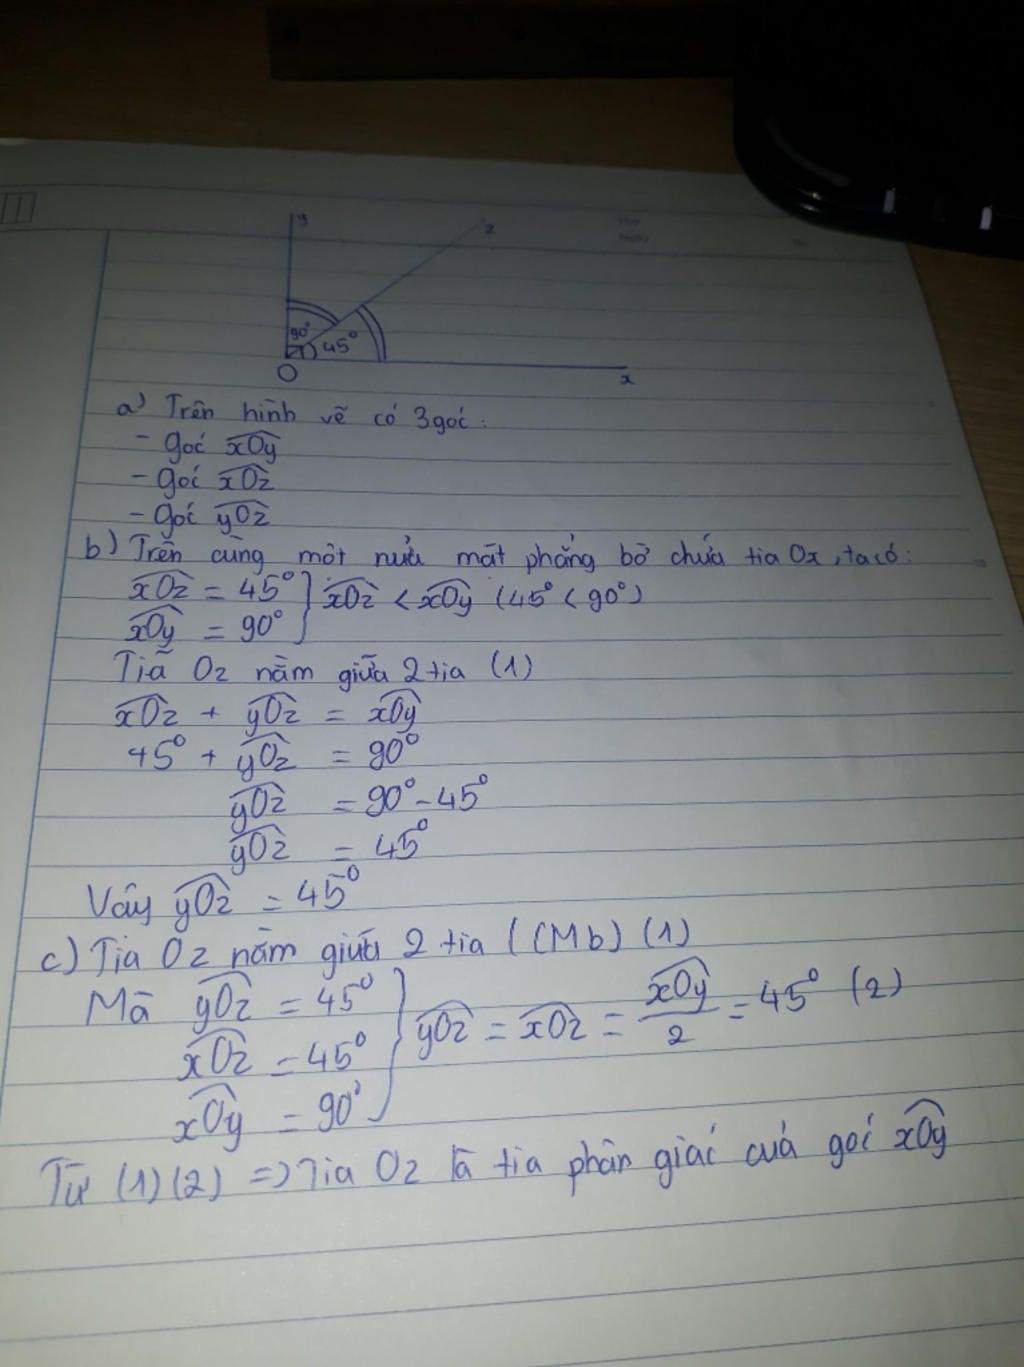 y
z
90°
45°
O
x
a) Trên hình vẽ có 3 góc:
- góc xOy
- góc xOz
- góc yOz
b) Trên cùng một nửa mặt phẳng bờ chứa tia Ox, ta có:
xOz = 45° } xOz < xOy (45° < 90°)
xOy = 90°
Tia Oz nằm giữa 2 tia (1)
xOz + yOz = xOy
45° + yOz = 90°
yOz = 90° - 45°
yOz = 45°
Vậy yOz = 45°
c) Tia Oz nằm giữa 2 tia ((M b) (1)
Mà yOz = 45°
xOz = 45° } yOz = xOz = xOy/2 = 45° (2)
xOy = 90°
Từ (1) (2) => Tia Oz là tia phân giác của góc xOy